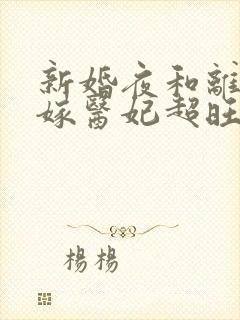 新婚夜和離
嫁醫妃超旺
楊楊